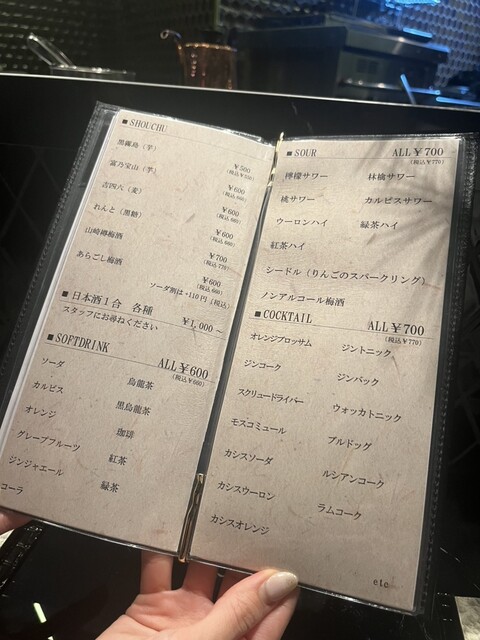 ■ SHOUCHU
黒霧島（芋） ￥500
(税込￥550)
富乃宝山（芋） ￥600
(税込 660)
吉四六（麦） ￥600
(税込 660)
れんと（黒糖） ￥600
(税込 660)
山崎樽梅酒 ￥700
(税込 770)
あらごし梅酒 ￥600
(税込 660)
ソーダ割は+110円（税込）
■ 日本酒１合 各種 ￥1,000～
スタッフにお尋ねください
■ SOFTDRINK ALL￥600
(税込￥660)
ソーダ 烏龍茶
カルピス 黒烏龍茶
オレンジ 珈琲
グレープフルーツ 紅茶
ジンジャエール 緑茶
コーラ
■ SOUR ALL￥700
(税込￥770)
檸檬サワー 林檎サワー
桃サワー カルピスサワー
ウーロンハイ 緑茶ハイ
紅茶ハイ
シードル（りんごのスパークリング）
ノンアルコール梅酒
■ COCKTAIL ALL￥700
(税込￥770)
オレンジブロッサム ジントニック
ジンコーク ジンバック
スクリュードライバー ウォッカトニック
モスコミュール ブルドッグ
カシスソーダ ルシアンコーク
カシスウーロン ラムコーク
カシスオレンジ
etc